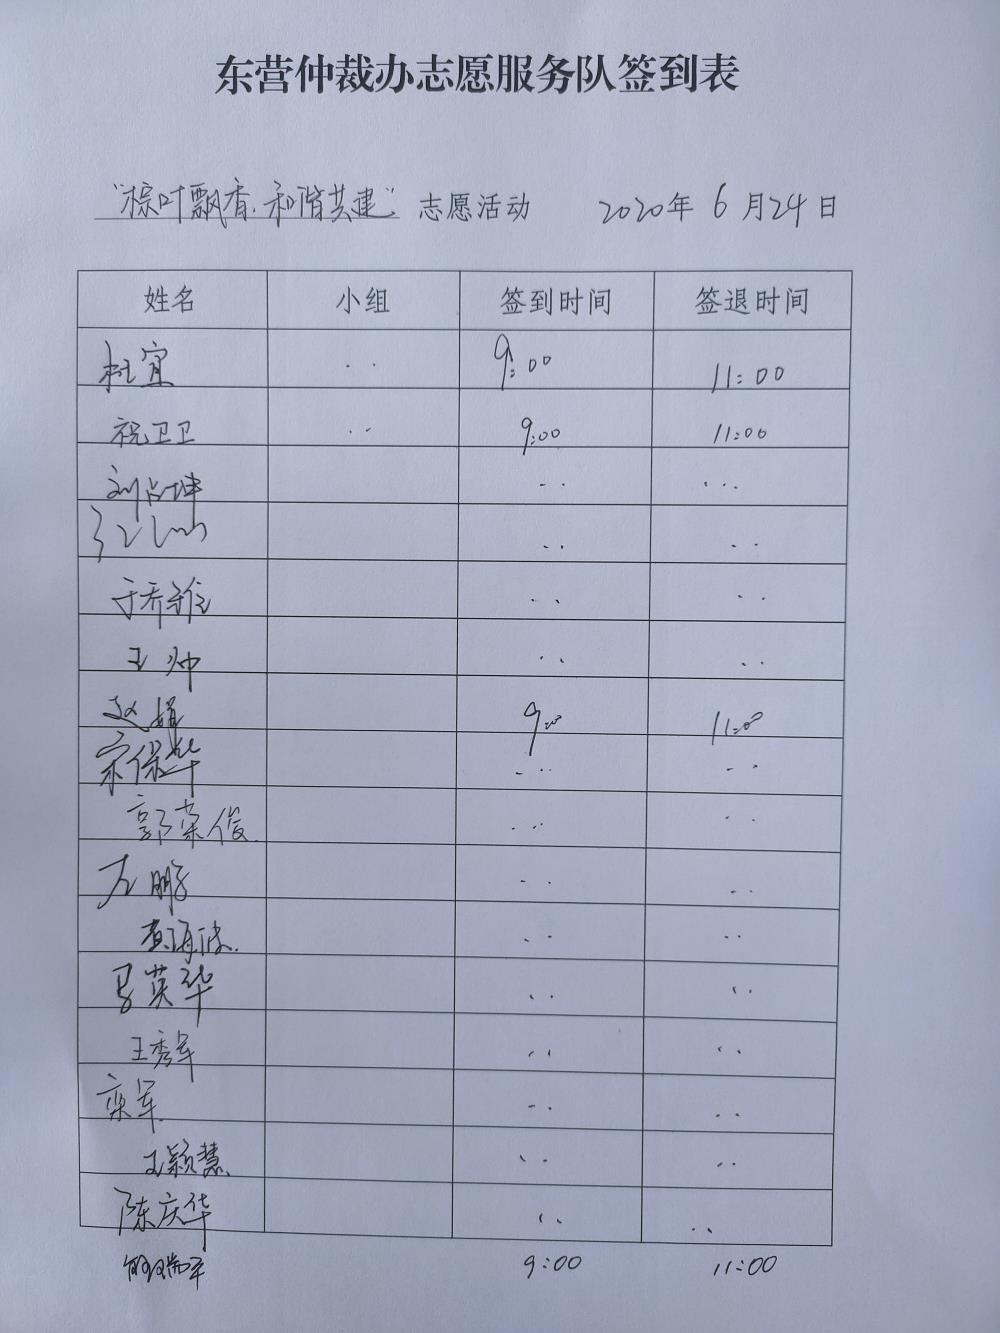 东营仲裁办志愿服务队签到表
"粽叶飘香.和谐共建" 志愿活动 2020年 6 月 24 日
姓名 小组 签到时间 签退时间
杜宜 ·· 9:00 11:00
祝卫卫 ·· 9:00 11:00
刘 坤 ·· ···
·· ··
于乔 ·· ··
王帅 ·· ··
赵娟 9:00 11:00
宋保华 ··· ··
郭荣俊. ··· ··
左鹏 ·· ··
黄海波. ·· ··
马英华 ·· ··
王秀军 ·· ··
栾军. ·· ··
王颖慧. ·· ··
陈庆华 ·· ··
瑞军 9:00 11:00